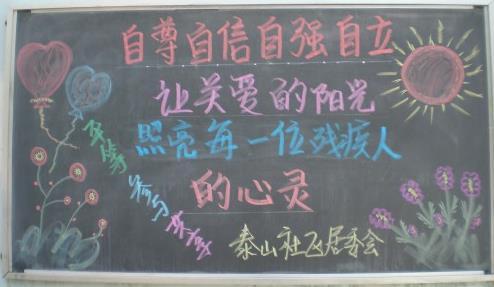 自尊自信自强自立
让关爱的阳光
照亮每一位残疾人
的心灵
平等
参与共享
泰山社区居委会